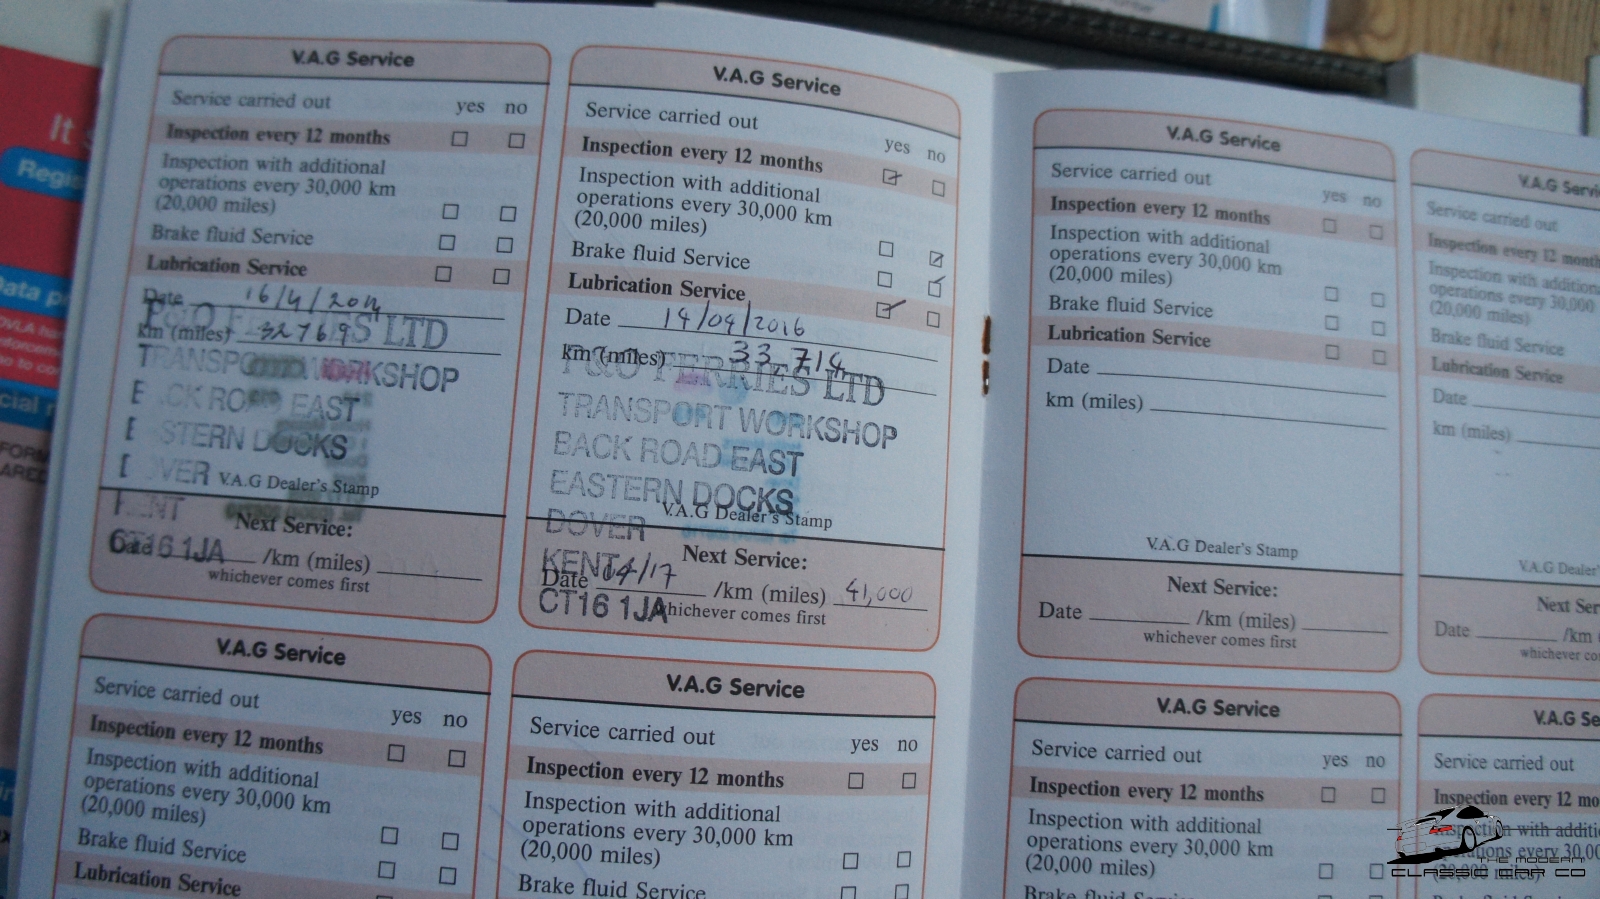 V.A.G Service
Service carried out yes no
Inspection every 12 months
Inspection with additional
operations every 30,000 km
(20,000 miles)
Brake fluid Service
Lubrication Service
Date 16/4/2014
km (miles) 32769
P&O FERRIES LTD
TRANSPORT WORKSHOP
BACK ROAD EAST
EASTERN DOCKS
DOVER
V.A.G Dealer's Stamp
KENT
Next Service:
CT16 1JA
Date /km (miles)
whichever comes first
V.A.G Service
Service carried out
yes no
Inspection every 12 months
Inspection with additional
operations every 30,000 km
(20,000 miles)
Brake fluid Service
Lubrication Service
Date 14/04/2016
km (miles) 33,714
P&O FERRIES LTD
TRANSPORT WORKSHOP
BACK ROAD EAST
EASTERN DOCKS
V.A.G Dealer's Stamp
DOVER
Next Service:
KENT
Date 04/17 /km (miles) 41,000
CT16 1JA
whichever comes first
V.A.G Service
Service carried out yes no
Inspection every 12 months
Inspection with additional
operations every 30,000 km
(20,000 miles)
Brake fluid Service
Lubrication Service
Date
km (miles)
V.A.G Dealer's Stamp
Next Service:
Date /km (miles)
whichever comes first
V.A.G Servi
Service carried out
Inspection every 12 month
Inspection with additiona
operations every 30,000
(20,000 miles)
Brake fluid Service
Lubrication Service
Date
km (miles)
V.A.G Dealer'
Next Ser
Date /km
whichever co
V.A.G Service
Service carried out
yes no
Inspection every 12 months
Inspection with additional
operations every 30,000 km
(20,000 miles)
Brake fluid Service
Lubrication Service
V.A.G Service
Service carried out yes no
Inspection every 12 months
Inspection with additional
operations every 30,000 km
(20,000 miles)
Brake fluid Service
V.A.G Service
Service carried out yes no
Inspection every 12 months
Inspection with additional
operations every 30,000 km
(20,000 miles)
Brake fluid Service
V.A.G Se
Service carried out
Inspection every 12 mo
Inspection with additi
operations every 30,00
(20,000 miles)
THE MODERN
CLASSIC CAR CO
It
Regi
Data p